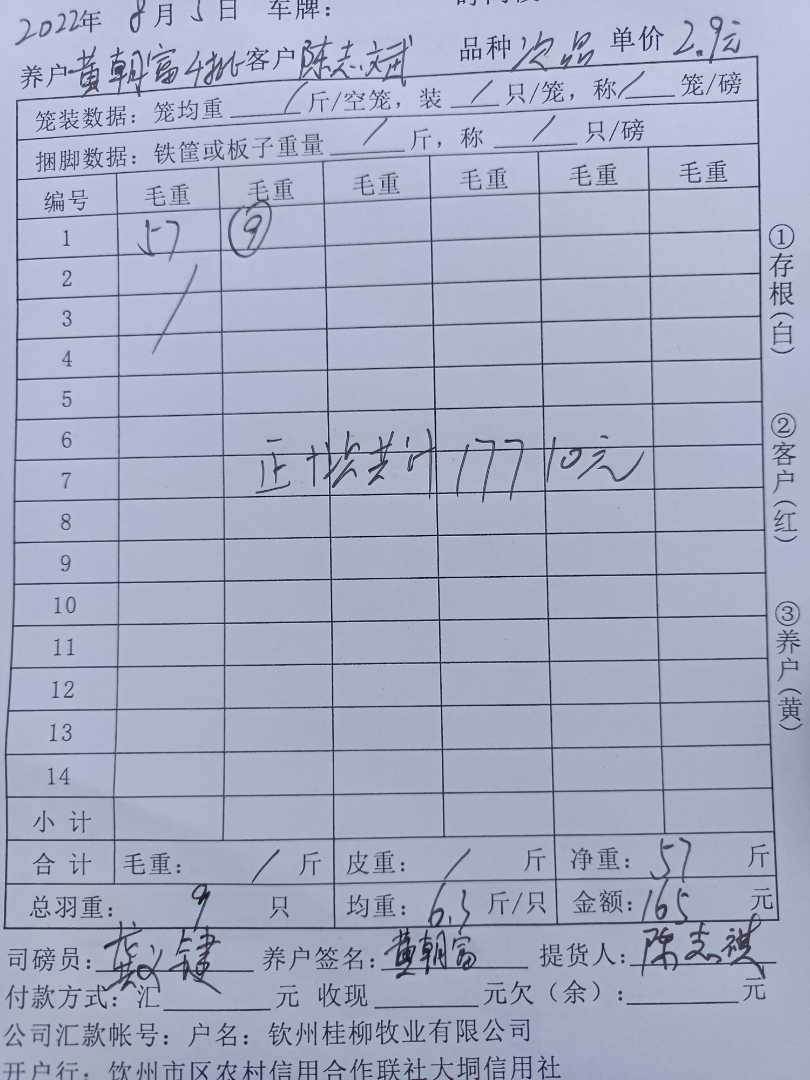 2022年 8月5日 车牌：
养户 黄朝富4批 客户 陈志斌 品种 次品 单价 2.9元
笼装数据：笼均重 / 斤/空笼，装 / 只/笼，称 / 笼/磅
捆脚数据：铁筐或板子重量 / 斤，称 / 只/磅
编号 毛重 毛重 毛重 毛重 毛重 毛重
1 57 ⑨
2 /
3
4
5
6
正+次共计17710元
7
8
9
10
11
12
13
14
小 计
合 计 毛重： / 斤 皮重： / 斤 净重：57 斤
总羽重： 9 只 均重：6.3 斤/只 金额：165 元
司磅员： 养户签名：黄朝富 提货人：陈志祺
付款方式：汇 元 收现 元欠（余）： 元
公司汇款帐号：户名：钦州桂柳牧业有限公司
开户行：钦州市区农村信用合作联社大垌信用社
①存根(白)
②客户(红)
③养户(黄)